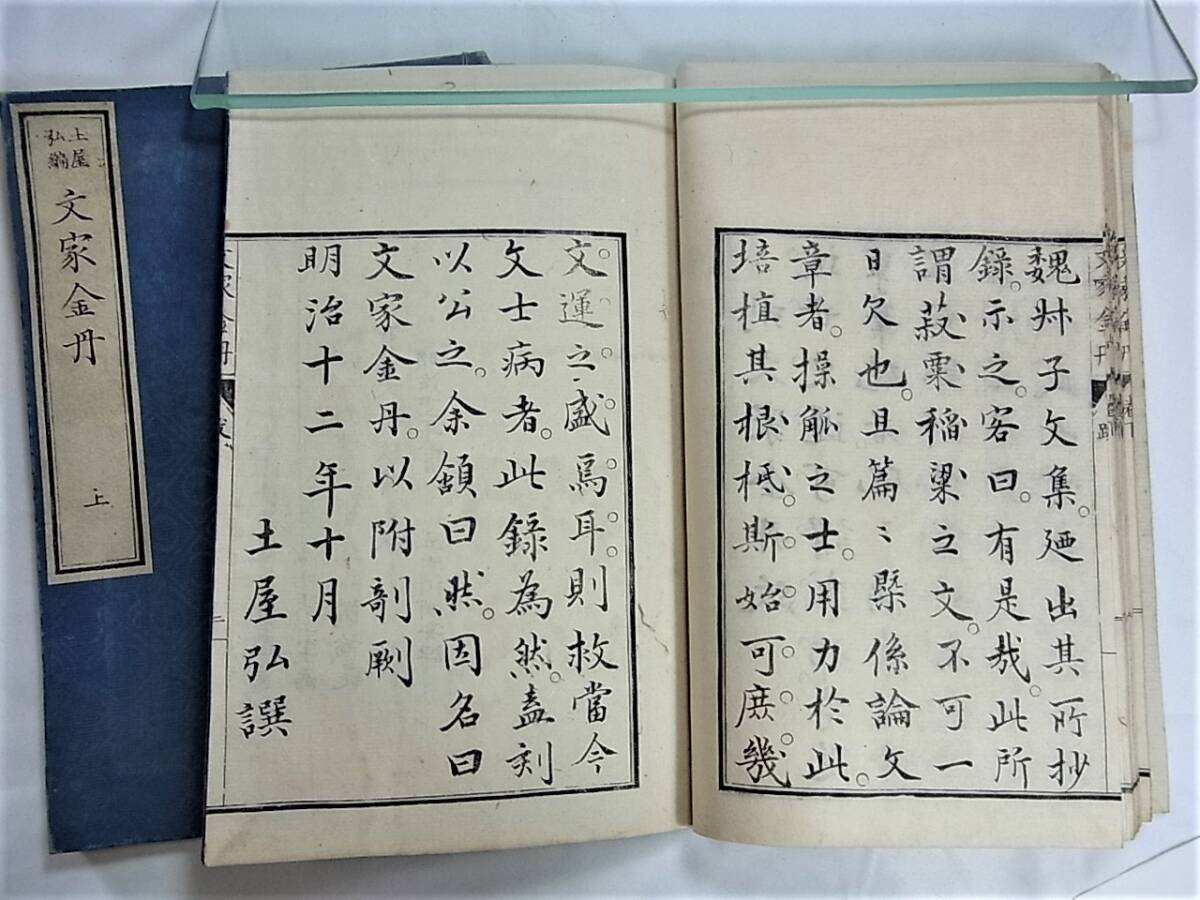 土屋
弘編
文家金丹
上
魏叔子文集。廼出其所抄
錄。示之。客曰。有是哉。此所
謂菽粟稲粱之文。不可一
日欠也。且篇〻槩係論文
章者。操觚之士。用力於此。
培植其根柢。斯始可庶幾
文運之盛焉耳。則救當今
文士病者。此錄為然。盍刻
以公之。余頷曰。然。因名曰
文家金丹。以附剞劂
明治十二年十月
土屋弘譔